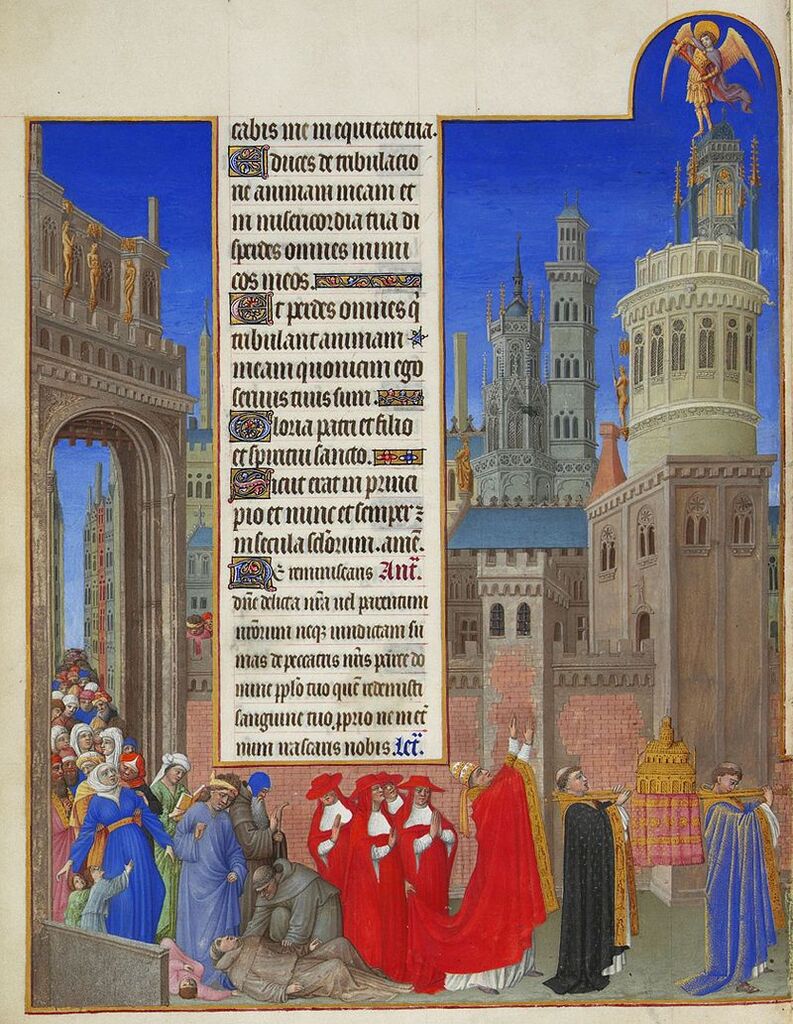 cabis me in equitate tua.
Educes de tribulacio
ne animam meam et
in misericordia tua di
sperdes omnes inimi
cos meos.
Et perdes omnes q̄
tribulant animam
meam quoniam ego
servus tuus sum.
Gloria patri et filio
et spiritui sancto.
Sicut erat in princi
pio et nunc et semper ⁊
in secula sclorum. amē.
Ne reminiscaris Ant̄.
dn̄e delicta nr̄a vel parentum
nr̄orum neqȝ vindictam su
mas de peccatis nr̄is parce do
mine pplo tuo quē redemisti
sanguine tuo pprio ne in et̄
num irascaris nobis. Let̄.